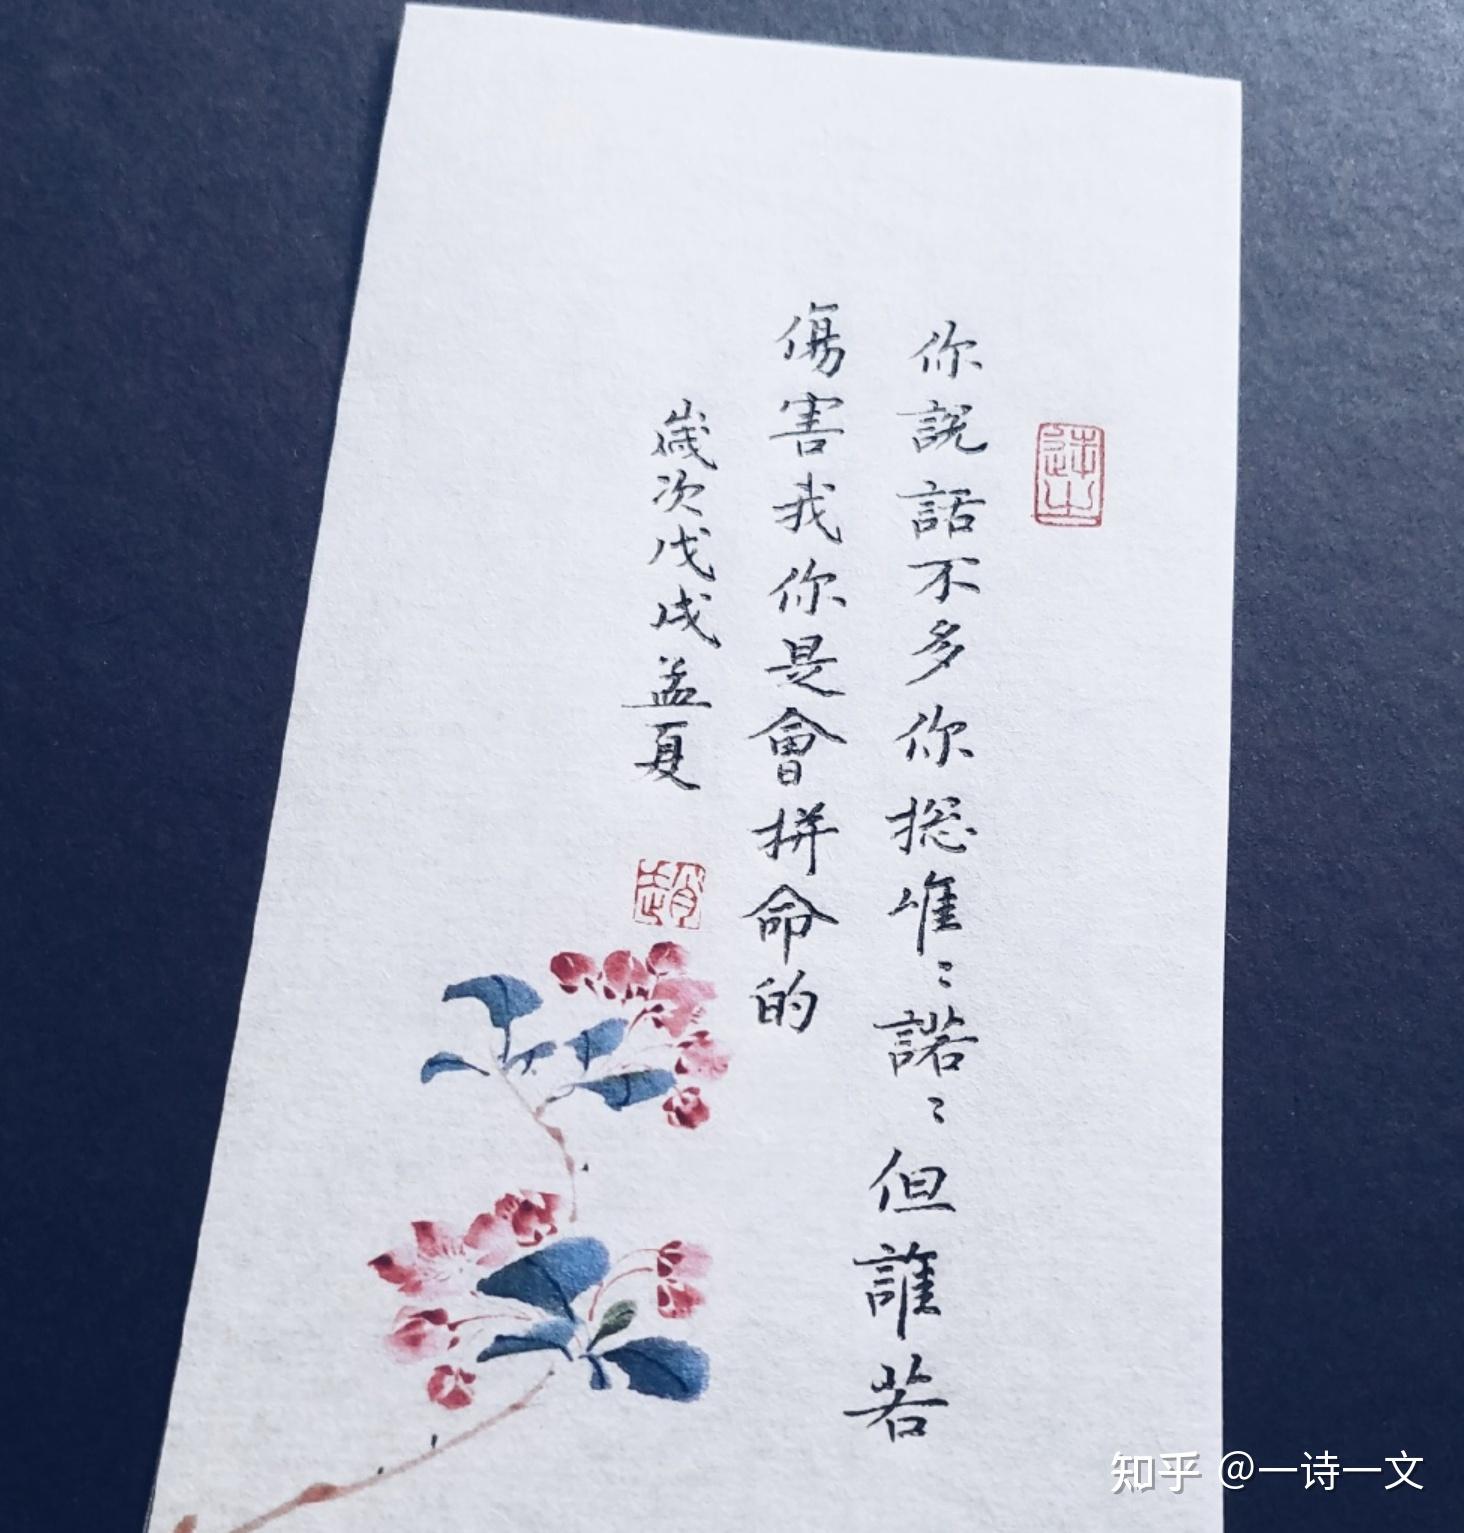 你説話不多你揔唯〻諾〻但誰若
傷害我你是會拼命的
歲次戊戌孟夏
趙
知乎 @一诗一文